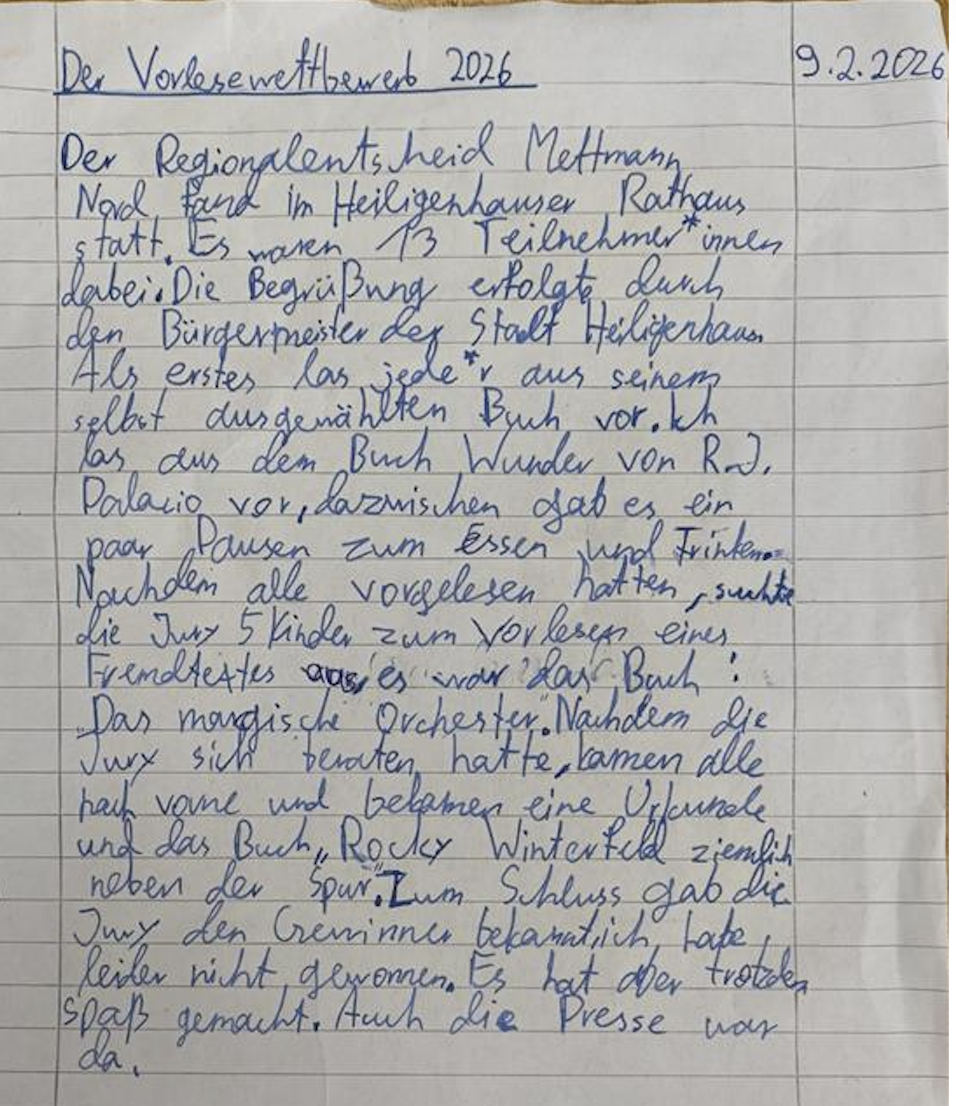 Der Vorlesewettbewerb 2026
9.2.2026
Der Regionalentscheid Mettmann
Nord, fand im Heiligenhauser Rathaus
statt. Es waren 13 Teilnehmer*innen
dabei. Die Begrüßung erfolgte durch
den Bürgermeister der Stadt Heiligenhaus.
Als erstes las jede*r aus seinem
selbst ausgewählten Buch vor. Ich
las aus dem Buch Wunder von R.J.
Palacio vor, dazwischen gab es ein
paar Pausen zum Essen und Trinken.
Nachdem alle vorgelesen hatten, suchte
die Jury 5 Kinder zum Vorlesen eines
Fremdtextes aus, es war das Buch:
„Das magische Orchester". Nachdem die
Jury sich beraten hatte, kamen alle
nach vorne und bekamen eine Urkunde
und das Buch „Rocky Winterfeld ziemlich
neben der Spur". Zum Schluss gab die
Jury den Gewinner bekannt, ich habe,
leider nicht gewonnen. Es hat aber trotzdem
Spaß gemacht. Auch die Presse war
da.